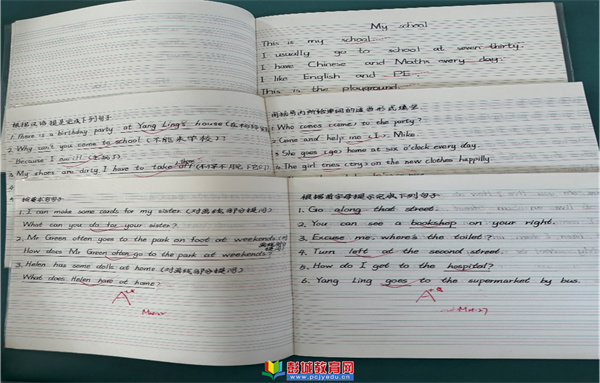 My school
This is my school.
I usually go to school at seven thirty.
I have Chinese and Maths every day.
I like English and PE.
This is the playground.
根据汉语提示完成下列句子
1. There is a birthday party at Yang Ling's house
2. Why can't you come to school (不能来学校)?
Because I
3. My shoes are dirty. I have to take off
用括号内所给单词的适当形式填空
1. Who comes (come) to the party?
2. Come and help me (I), Mike.
3. She goes (go) home at six o'clock every day.
4. The girl tries (try) on the new clothes happily
按要求写句子
1. I can make some cards for my sister (对画线部分提问)
What can you do for your sister?
2. Mr Green often goes to the park on foot at weekends (对
How does Mr Green often go to the park at weekends?
3. Helen has some dolls at home (对画线部分提问)
What does Helen have at home?
A
根据首字母提示完成下列句子
1. Go along that street.
2. You can see a bookshop on your right.
3. Excuse me, where's the toilet?
4. Turn left at the second street.
5. How do I get to the hospital?
6. Yang Ling goes to the supermarket by bus.
A
彭城教育网
www.pcjyedu.cn